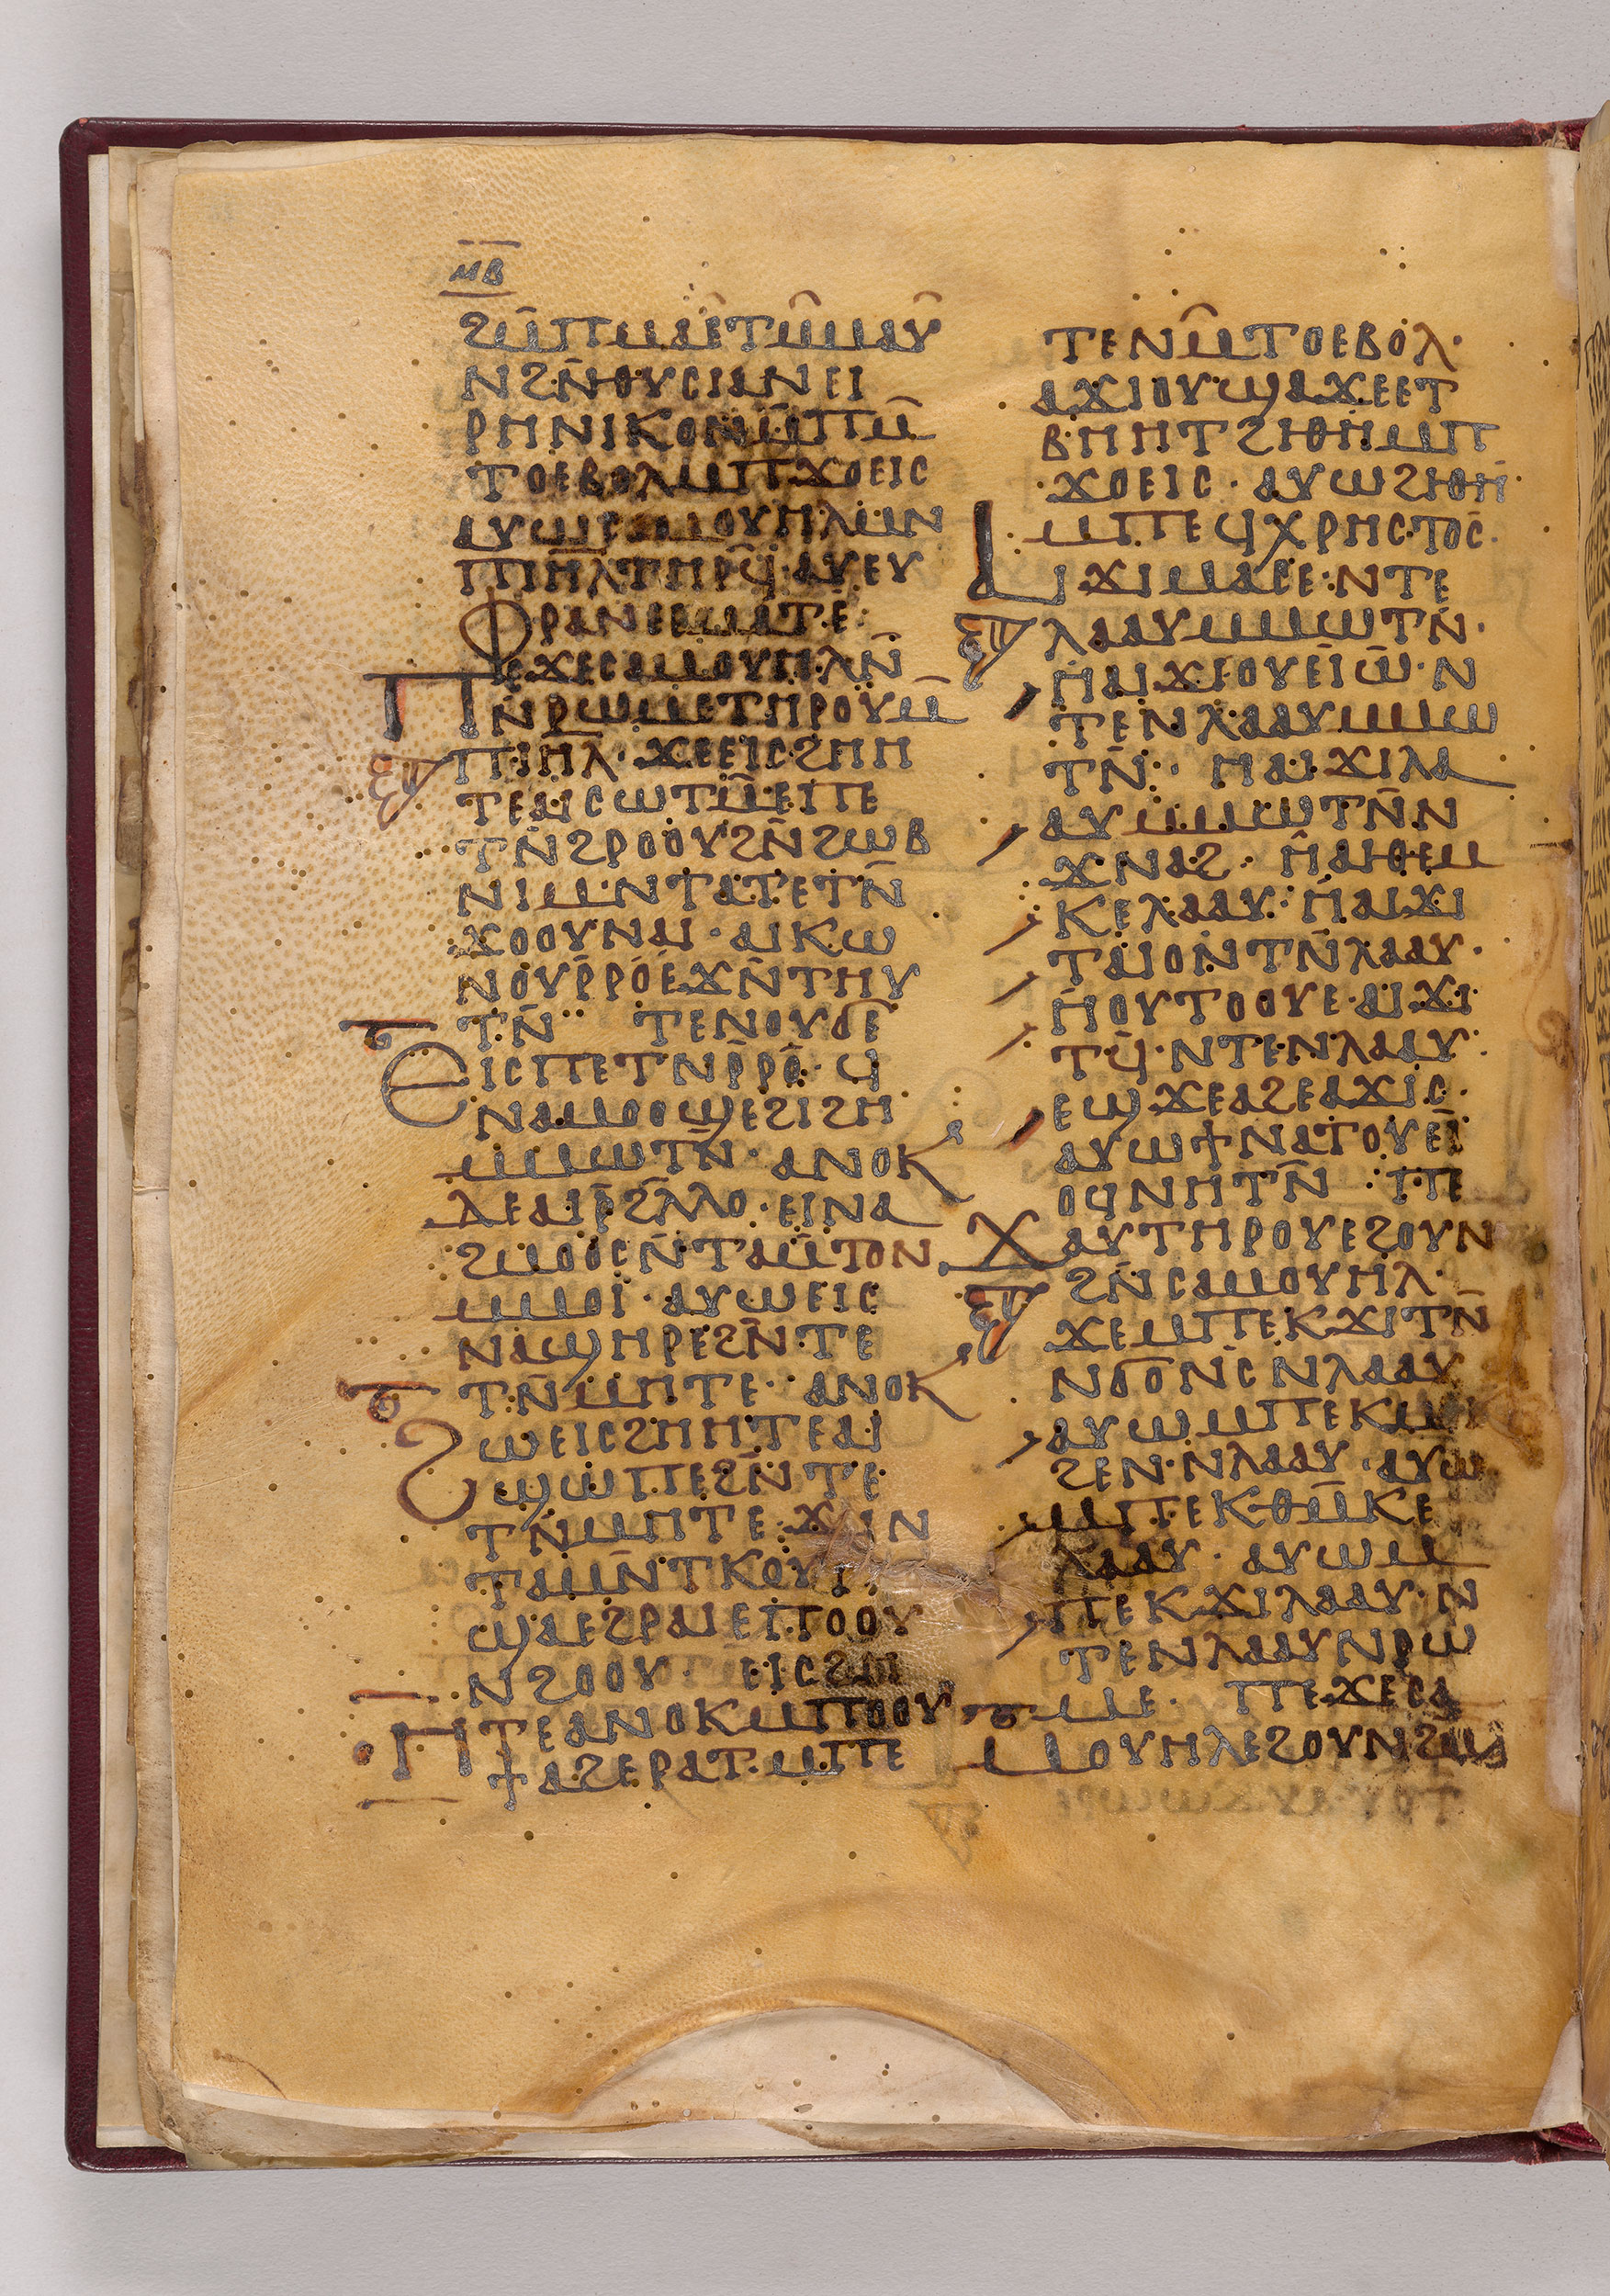 ⲙⲃ
ϩⲙ̄ⲡⲙⲁⲉⲧⲙ̄ⲙⲁⲩ
ⲛϩⲛ̄ⲑⲩⲥⲓⲁⲛⲉⲓ
ⲣⲏⲛⲓⲕⲟⲛⲙ̄ⲡⲙ̄
ⲧⲟⲉⲃⲟⲗⲙⲡϫⲟⲉⲓⲥ
ⲁⲩⲱⲥⲁⲙⲟⲩⲏⲗⲙⲛ
ⲡⲓⲏ̄ⲗⲧⲏⲣϥ̄·ⲁⲩⲉⲩ
ⲫⲣⲁⲛⲉⲉⲙⲁⲧⲉ·
ⲡⲉϫⲉⲥⲁⲙⲟⲩⲏⲗⲛ̄
ⲛ̄ⲣⲱⲙⲉⲧⲏⲣⲟⲩⲙ̄
ⲡⲓⲏⲗ·ϫⲉⲉⲓⲥϩⲏⲏ
ⲧⲉⲁⲓⲥⲱⲧⲙ̄ⲉⲡⲉ
ⲧⲛ̄ϩⲣⲟⲟⲩϩⲛ̄ϩⲱⲃ
ⲛⲓⲙ·ⲛⲧⲁⲧⲉⲧⲛ̄
ϫⲟⲟⲩⲛⲁⲓ·ⲁⲓⲕⲱ
ⲛⲟⲩⲣ̄ⲣⲟⲉϫⲛ̄ⲧⲏⲩ
ⲧⲛ̄·· ⲧⲉⲛⲟⲩϭⲉ
ⲉⲓⲥⲡⲉⲧⲛ̄ⲣ̄ⲣⲟ·ϥ
ⲛⲁⲙⲟⲟϣⲉϩⲓϩⲏ
ⲙⲙⲱⲧⲛ̄·ⲁⲛⲟⲕ
ⲇⲉⲁⲓⲣ̄ϩⲗ̄ⲗⲟ·ⲉⲓⲛⲁ
ϩⲙⲟⲟⲥⲛ̄ⲧⲁⲙ̄ⲧⲟⲛ
ⲙⲙⲟⲓ̈·ⲁⲩⲱⲉⲓⲥ
ⲛⲁϣⲏⲣⲉϩⲛ̄·ⲧⲉ
ⲧⲛ̄ⲙⲏⲧⲉ·ⲁⲛⲟⲕ
ϩⲱⲉⲓⲥϩⲏⲏⲧⲉⲁⲓ
ϣⲱⲡⲉϩⲛ̄ⲧⲉ
ⲧⲛ̄ⲙⲏⲧⲉ·ϫⲓⲛ
ⲧⲁⲙⲛ̄ⲧⲕⲟⲩⲓ
ϣⲁⲉϩⲣⲁⲓⲉⲡⲟⲟⲩ
ⲛϩⲟⲟⲩ· ⲉⲓⲥϩⲏ
ⲏⲧⲉⲁⲛⲟⲕⲙⲡⲟⲟⲩ
ϯⲁϩⲉⲣⲁⲧ·ⲙⲡⲉ
ⲧⲉⲛⲙ̄ⲧⲟⲉⲃⲟⲗ·
ⲁϫⲓⲟⲩϣⲁϫⲉⲉⲧ
ⲃⲏⲏⲧϩⲓⲑⲏⲙⲡ
ϫⲟⲉⲓⲥ·ⲁⲩⲱϩⲓⲑⲏ
ⲙⲡⲉϥⲭⲣⲏⲥⲧⲟⲥ·
ⲁⲓϫⲓⲙⲁⲥⲉ·ⲛⲧⲉ
ⲗⲁⲁⲩⲙⲙⲱⲧⲛ̄·
ⲏⲁⲓϫⲓⲟⲩⲉⲓⲱ̄·ⲛ
ⲧⲉⲛⲗⲁⲁⲩⲙⲙⲱ
ⲧⲛ̄· ⲏⲁⲓϫⲓⲗⲁ
ⲁⲩⲙⲙⲱⲧⲛ̄ⲛ
ϫⲛⲁϩ· ⲏⲁⲓⲑⲉⲙ
ⲕⲉⲗⲁⲁⲩ·ⲏⲁⲓϫⲓ
ⲧⲁⲓⲟⲛⲧⲛ̄ⲗⲁⲁⲩ·
ⲏⲟⲩⲧⲟⲟⲩⲉ·ⲁⲓϫⲓ
ⲧϥ̄·ⲛⲧⲉⲛⲗⲁⲁⲩ·
ⲉϣϫⲉⲁϩⲉⲁϫⲓⲥ·
ⲁⲩⲱϯⲛⲁⲧⲟⲩⲉⲓ
ⲟϥⲛⲏⲧⲛ̄ ·ⲡⲉ
ϫⲁⲩⲧⲏⲣⲟⲩⲉϩⲟⲩⲛ
ϩⲛ̄ⲥⲁⲙⲟⲩⲏⲗ·
ϫⲉⲙⲡⲉⲕϫⲓⲧⲛ̄
ⲛϭⲟⲛⲥ̄ⲛⲗⲁⲁⲩ
ⲁⲩⲱⲙⲡⲉⲕⲙⲟⲕ
ϩⲉⲛ·ⲛⲗⲁⲁⲩ·ⲁⲩⲱ
ⲙⲡⲉⲕⲑⲙ̄ⲕⲉ
ⲗⲁⲁⲩ·ⲁⲩⲱⲙ
ⲡⲉⲕϫⲓⲗⲁⲁⲩ·ⲛ
ⲧⲉⲛⲗⲁⲁⲩⲛⲣⲱ
ⲙⲉ· ⲡⲉϫⲉⲥⲁ
ⲙⲟⲩⲏⲗⲉϩⲟⲩⲛϩⲙ